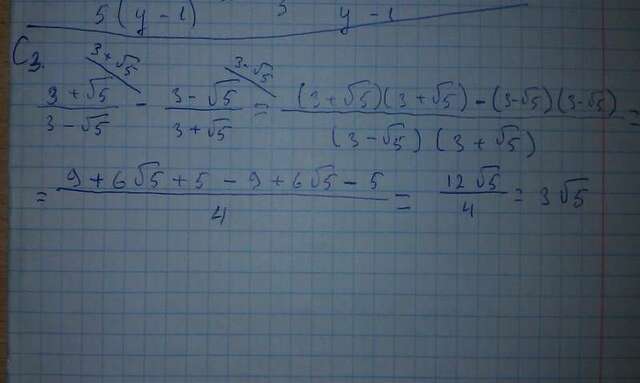 5(y-1) 3 y-1
C3.
3+√5 3-√5
(3+√5)/(3-√5) - (3-√5)/(3+√5) = ((3+√5)(3+√5)-(3-√5)(3-√5))/((3-√5)(3+√5)) =
= (9+6√5+5-9+6√5-5)/4 = 12√5/4 = 3√5